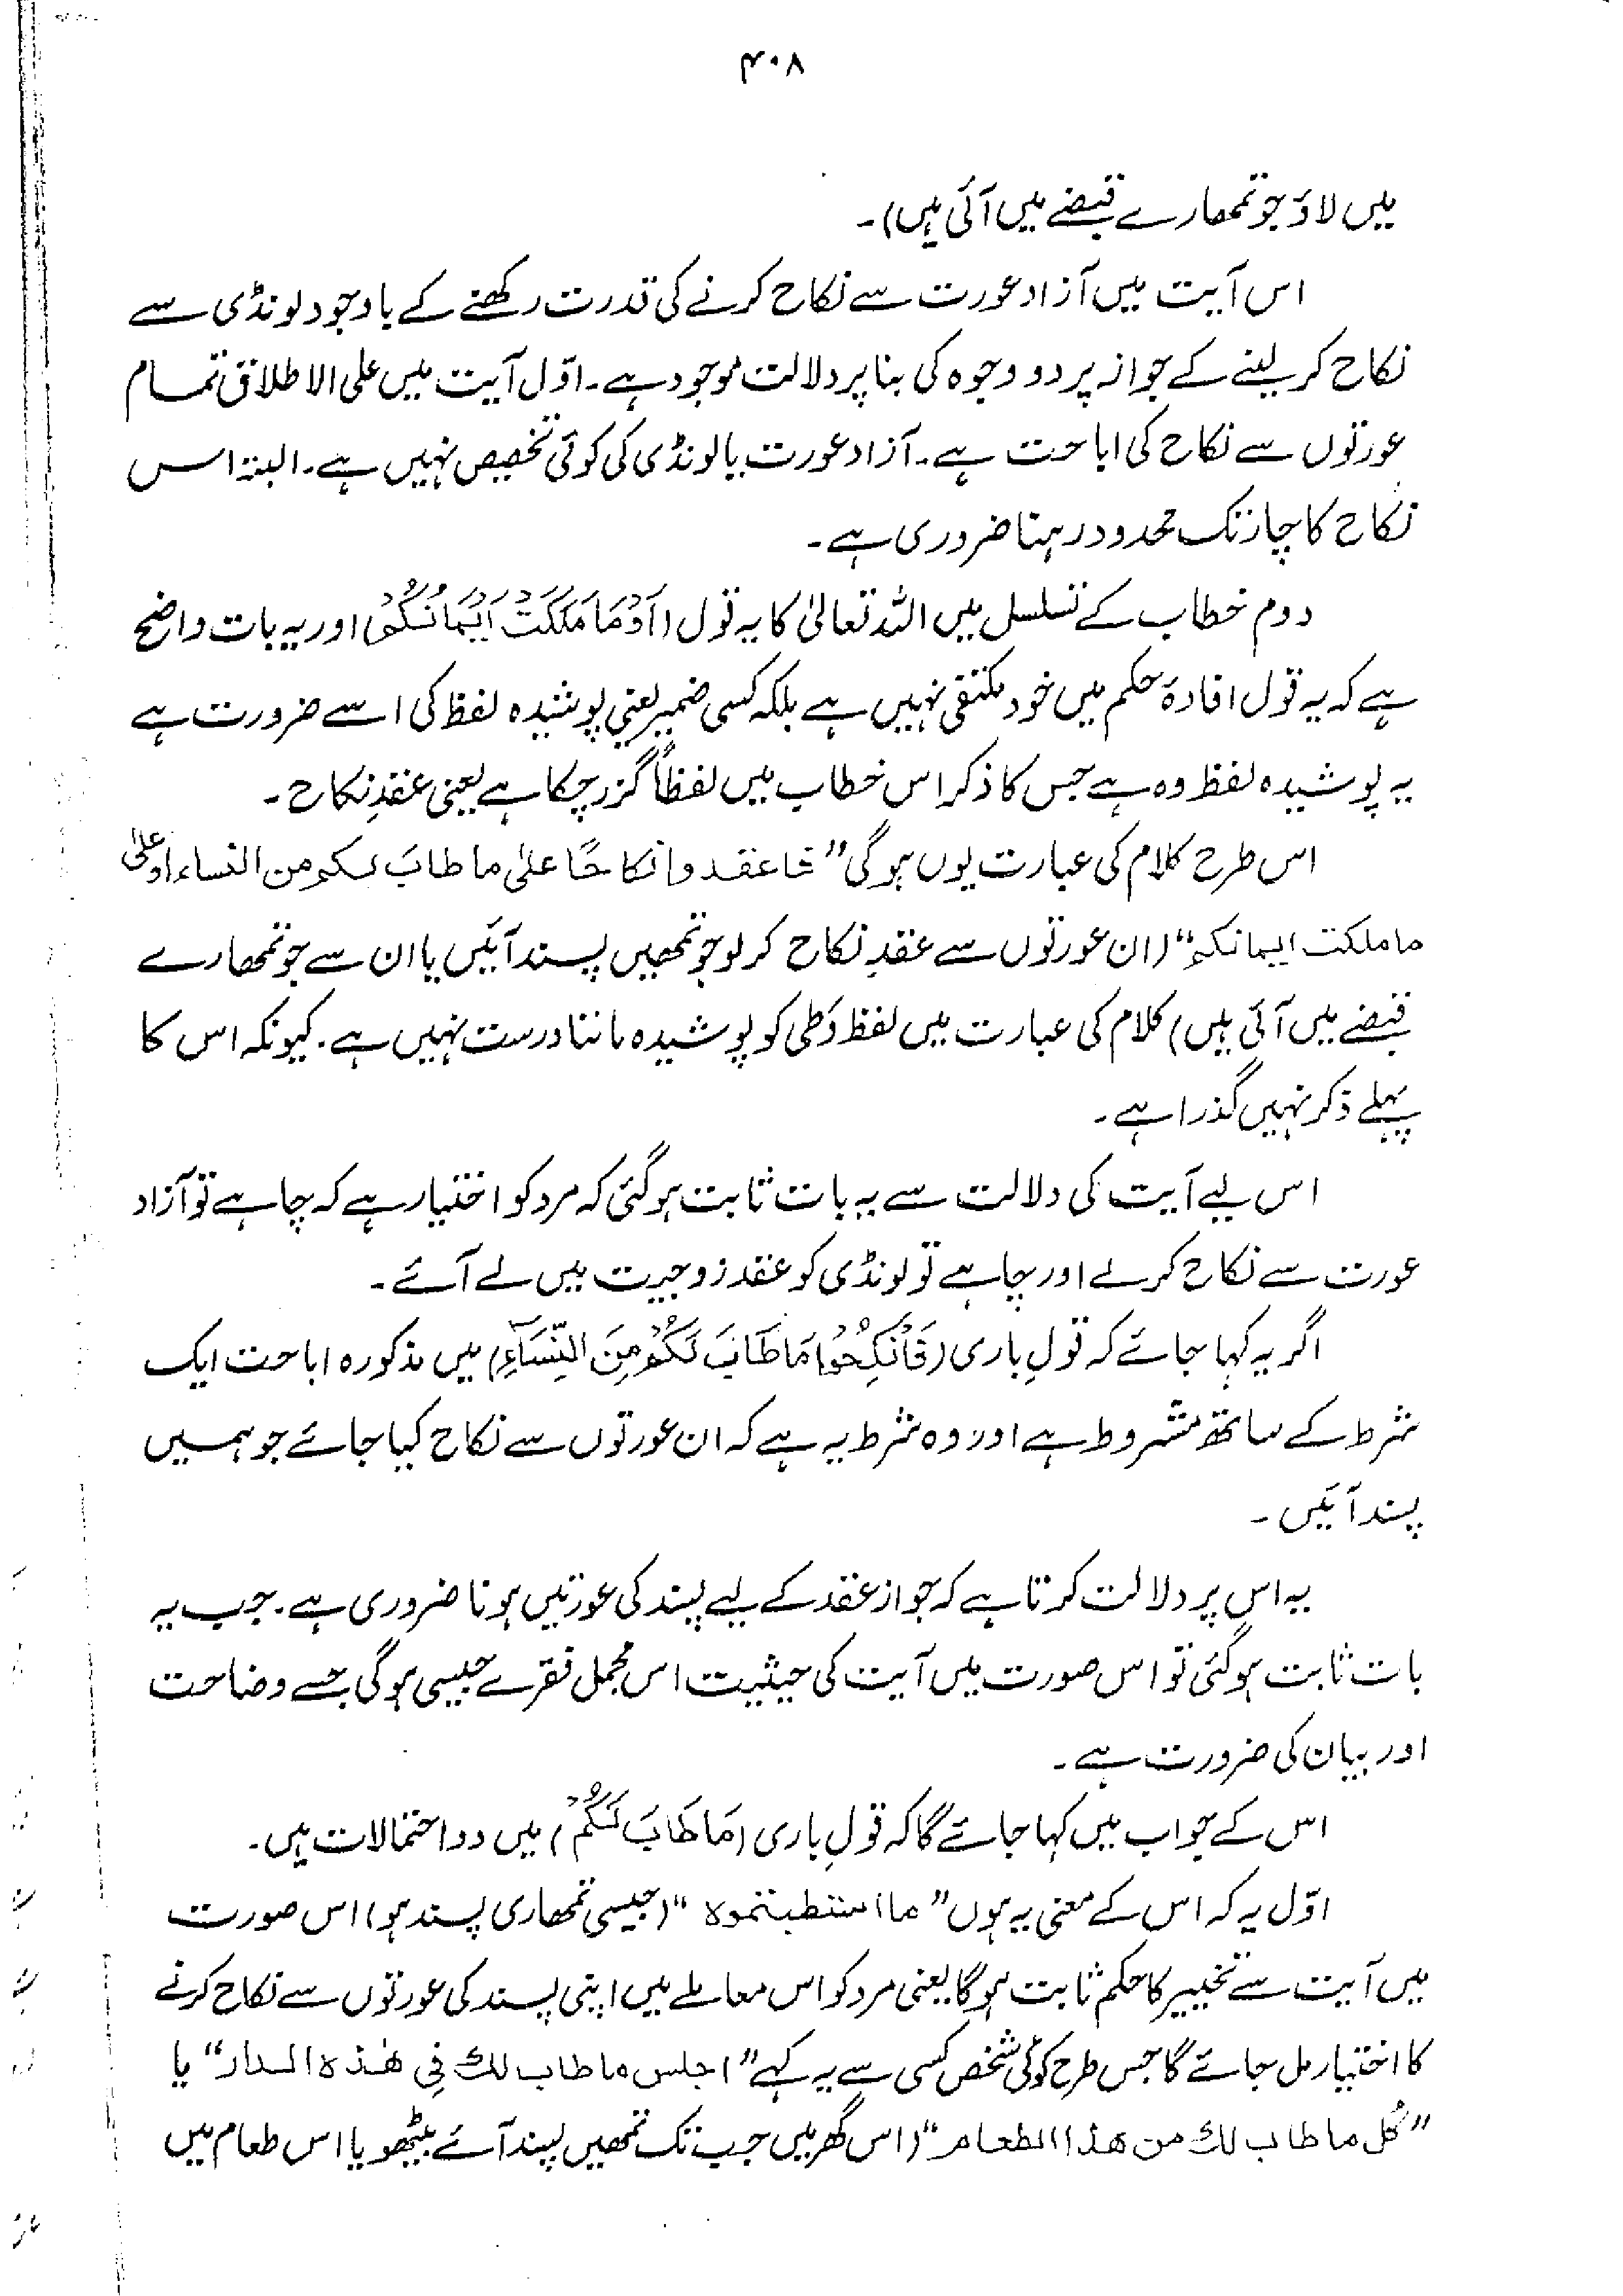 ۴۰۸
میں لاؤ جو تمھارے قبضے میں آئی ہیں)۔
اس آیت میں آزاد عورت سے نکاح کرنے کی قدرت رکھنے کے باوجود لونڈی سے
نکاح کر لینے کے جواز پر دو وجوہ کی بنا پر دلالت موجود ہے۔ اوّل آیت میں علی الاطلاق تمام
عورتوں سے نکاح کی اباحت ہے۔ آزاد عورت یا لونڈی کی کوئی تخصیص نہیں ہے۔ البتہ اس
نکاح کا چار تک محدود رہنا ضروری ہے۔
دوم خطاب کے تسلسل میں اللہ تعالیٰ کا یہ قول (اَوْ مَا مَلَکَتْ اَیْمَانُکُمْ) اور یہ بات واضح
ہے کہ یہ قول افادۂ حکم میں خود مکتفی نہیں ہے بلکہ کسی ضمیر یعنی پوشیدہ لفظ کی اسے ضرورت ہے
یہ پوشیدہ لفظ وہ ہے جس کا ذکر اس خطاب میں لفظاً گزر چکا ہے یعنی عقدِ نکاح۔
اس طرح کلام کی عبارت یوں ہو گی ”فاعقدوا نکاحًا علیٰ ما طابَ لکم من النساء او علیٰ
ما ملکت ایمانکم“ (ان عورتوں سے عقدِ نکاح کر لو جو تمھیں پسند آئیں یا ان سے جو تمھارے
قبضے میں آئی ہیں) کلام کی عبارت میں لفظ وَطی کو پوشیدہ ماننا درست نہیں ہے۔ کیونکہ اس کا
پہلے ذکر نہیں گذرا ہے۔
اس لیے آیت کی دلالت سے یہ بات ثابت ہو گئی کہ مرد کو اختیار ہے کہ چاہے تو آزاد
عورت سے نکاح کر لے اور چاہے تو لونڈی کو عقد زوجیت میں لے آئے۔
اگر یہ کہا جائے کہ قولِ باری (فَانْکِحُوْا مَا طَابَ لَکُمْ مِنَ النِّسَآءِ) میں مذکورہ اباحت ایک
شرط کے ساتھ مشروط ہے اور وہ شرط یہ ہے کہ ان عورتوں سے نکاح کیا جائے جو ہمیں
پسند آئیں۔
یہ اس پر دلالت کرتا ہے کہ جواز عقد کے لیے پسند کی عورتیں ہونا ضروری ہے۔ جب یہ
بات ثابت ہو گئی تو اس صورت میں آیت کی حیثیت اس مجمل فقرے جیسی ہو گی جسے وضاحت
اور بیان کی ضرورت ہے۔
اس کے جواب میں کہا جائے گا کہ قولِ باری (مَا طَابَ لَکُمْ) میں دو احتمالات ہیں۔
اوّل یہ کہ اس کے معنی یہ ہوں ”ما استطبتموہ“ (جیسی تمھاری پسند ہو) اس صورت
میں آیت سے تخییر کا حکم ثابت ہو گا یعنی مرد کو اس معاملے میں اپنی پسند کی عورتوں سے نکاح کرنے
کا اختیار مل جائے گا جس طرح کوئی شخص کسی سے یہ کہے ”اجلس ما طاب لك فی ھٰذہ الدار“ یا
”کُل ما طاب لك من ھذا الطعام“ (اس گھر میں جب تک تمھیں پسند آئے بیٹھو یا اس طعام میں